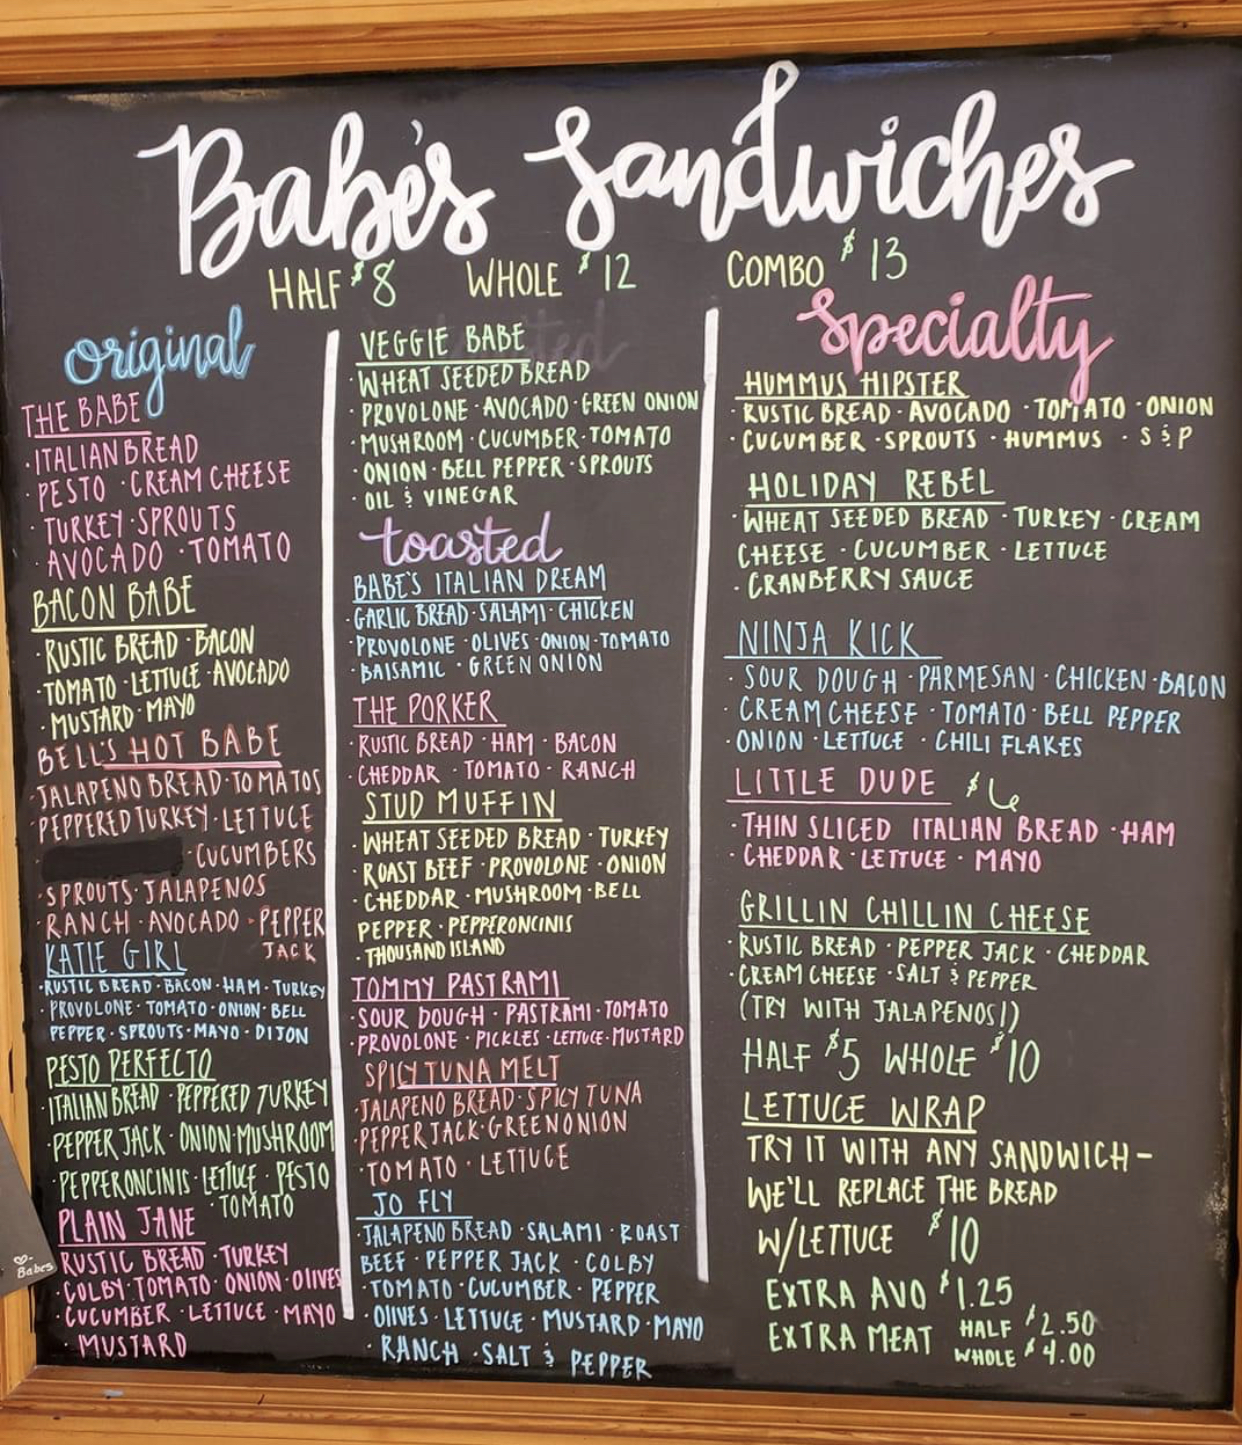 Babe's Sandwiches
HALF $8 WHOLE $12 COMBO $13
original
THE BABE
·ITALIAN BREAD
·PESTO ·CREAM CHEESE
·TURKEY·SPROUTS
·AVOCADO ·TOMATO
BACON BABE
·RUSTIC BREAD ·BACON
·TOMATO·LETTUCE·AVOCADO
·MUSTARD·MAYO
BELL'S HOT BABE
·JALAPENO BREAD·TOMATOS
·PEPPERED TURKEY·LETTUCE
·CUCUMBERS
·SPROUTS·JALAPENOS
·RANCH·AVOCADO·PEPPER
JACK
KATIE GIRL
·RUSTIC BREAD·BACON·HAM·TURKEY
·PROVOLONE·TOMATO·ONION·BELL
PEPPER·SPROUTS·MAYO·DIJON
PESTO PERFECTO
·ITALIAN BREAD·PEPPERED TURKEY
·PEPPER JACK·ONION·MUSHROOM
·PEPPERONCINIS·LETTUCE·PESTO
·TOMATO
PLAIN JANE
RUSTIC BREAD·TURKEY
·COLBY·TOMATO·ONION·OLIVES
·CUCUMBER·LETTUCE·MAYO
·MUSTARD
VEGGIE BABE
·WHEAT SEEDED BREAD
·PROVOLONE·AVOCADO·GREEN ONION
·MUSHROOM·CUCUMBER·TOMATO
·ONION·BELL PEPPER·SPROUTS
·OIL & VINEGAR
toasted
BABE'S ITALIAN DREAM
·GARLIC BREAD·SALAMI·CHICKEN
·PROVOLONE·OLIVES·ONION·TOMATO
·BALSAMIC·GREEN ONION
THE PORKER
·RUSTIC BREAD·HAM·BACON
·CHEDDAR·TOMATO·RANCH
STUD MUFFIN
·WHEAT SEEDED BREAD·TURKEY
·ROAST BEEF·PROVOLONE·ONION
·CHEDDAR·MUSHROOM·BELL
PEPPER·PEPPERONCINIS
·THOUSAND ISLAND
TOMMY PASTRAMI
·SOUR DOUGH·PASTRAMI·TOMATO
·PROVOLONE·PICKLES·LETTUCE·MUSTARD
SPICY TUNA MELT
·JALAPENO BREAD·SPICY TUNA
·PEPPER JACK·GREEN ONION
·TOMATO·LETTUCE
JO FLY
·JALAPENO BREAD·SALAMI·ROAST
BEEF·PEPPER JACK·COLBY
·TOMATO·CUCUMBER·PEPPER
·OLIVES·LETTUCE·MUSTARD·MAYO
·RANCH·SALT & PEPPER
Specialty
HUMMUS HIPSTER
·RUSTIC BREAD·AVOCADO·TOMATO·ONION
·CUCUMBER·SPROUTS·HUMMUS·S & P
HOLIDAY REBEL
·WHEAT SEEDED BREAD·TURKEY·CREAM
CHEESE·CUCUMBER·LETTUCE
·CRANBERRY SAUCE
NINJA KICK
·SOUR DOUGH·PARMESAN·CHICKEN·BACON
·CREAM CHEESE·TOMATO·BELL PEPPER
·ONION·LETTUCE·CHILI FLAKES
LITTLE DUDE $6
·THIN SLICED ITALIAN BREAD·HAM
·CHEDDAR·LETTUCE·MAYO
GRILLIN CHILLIN CHEESE
·RUSTIC BREAD·PEPPER JACK·CHEDDAR
·CREAM CHEESE·SALT & PEPPER
(TRY WITH JALAPENOS!)
HALF $5 WHOLE $10
LETTUCE WRAP
TRY IT WITH ANY SANDWICH-
WE'LL REPLACE THE BREAD
W/LETTUCE $10
EXTRA AVO $1.25
EXTRA MEAT HALF $2.50
WHOLE $4.00
Babes